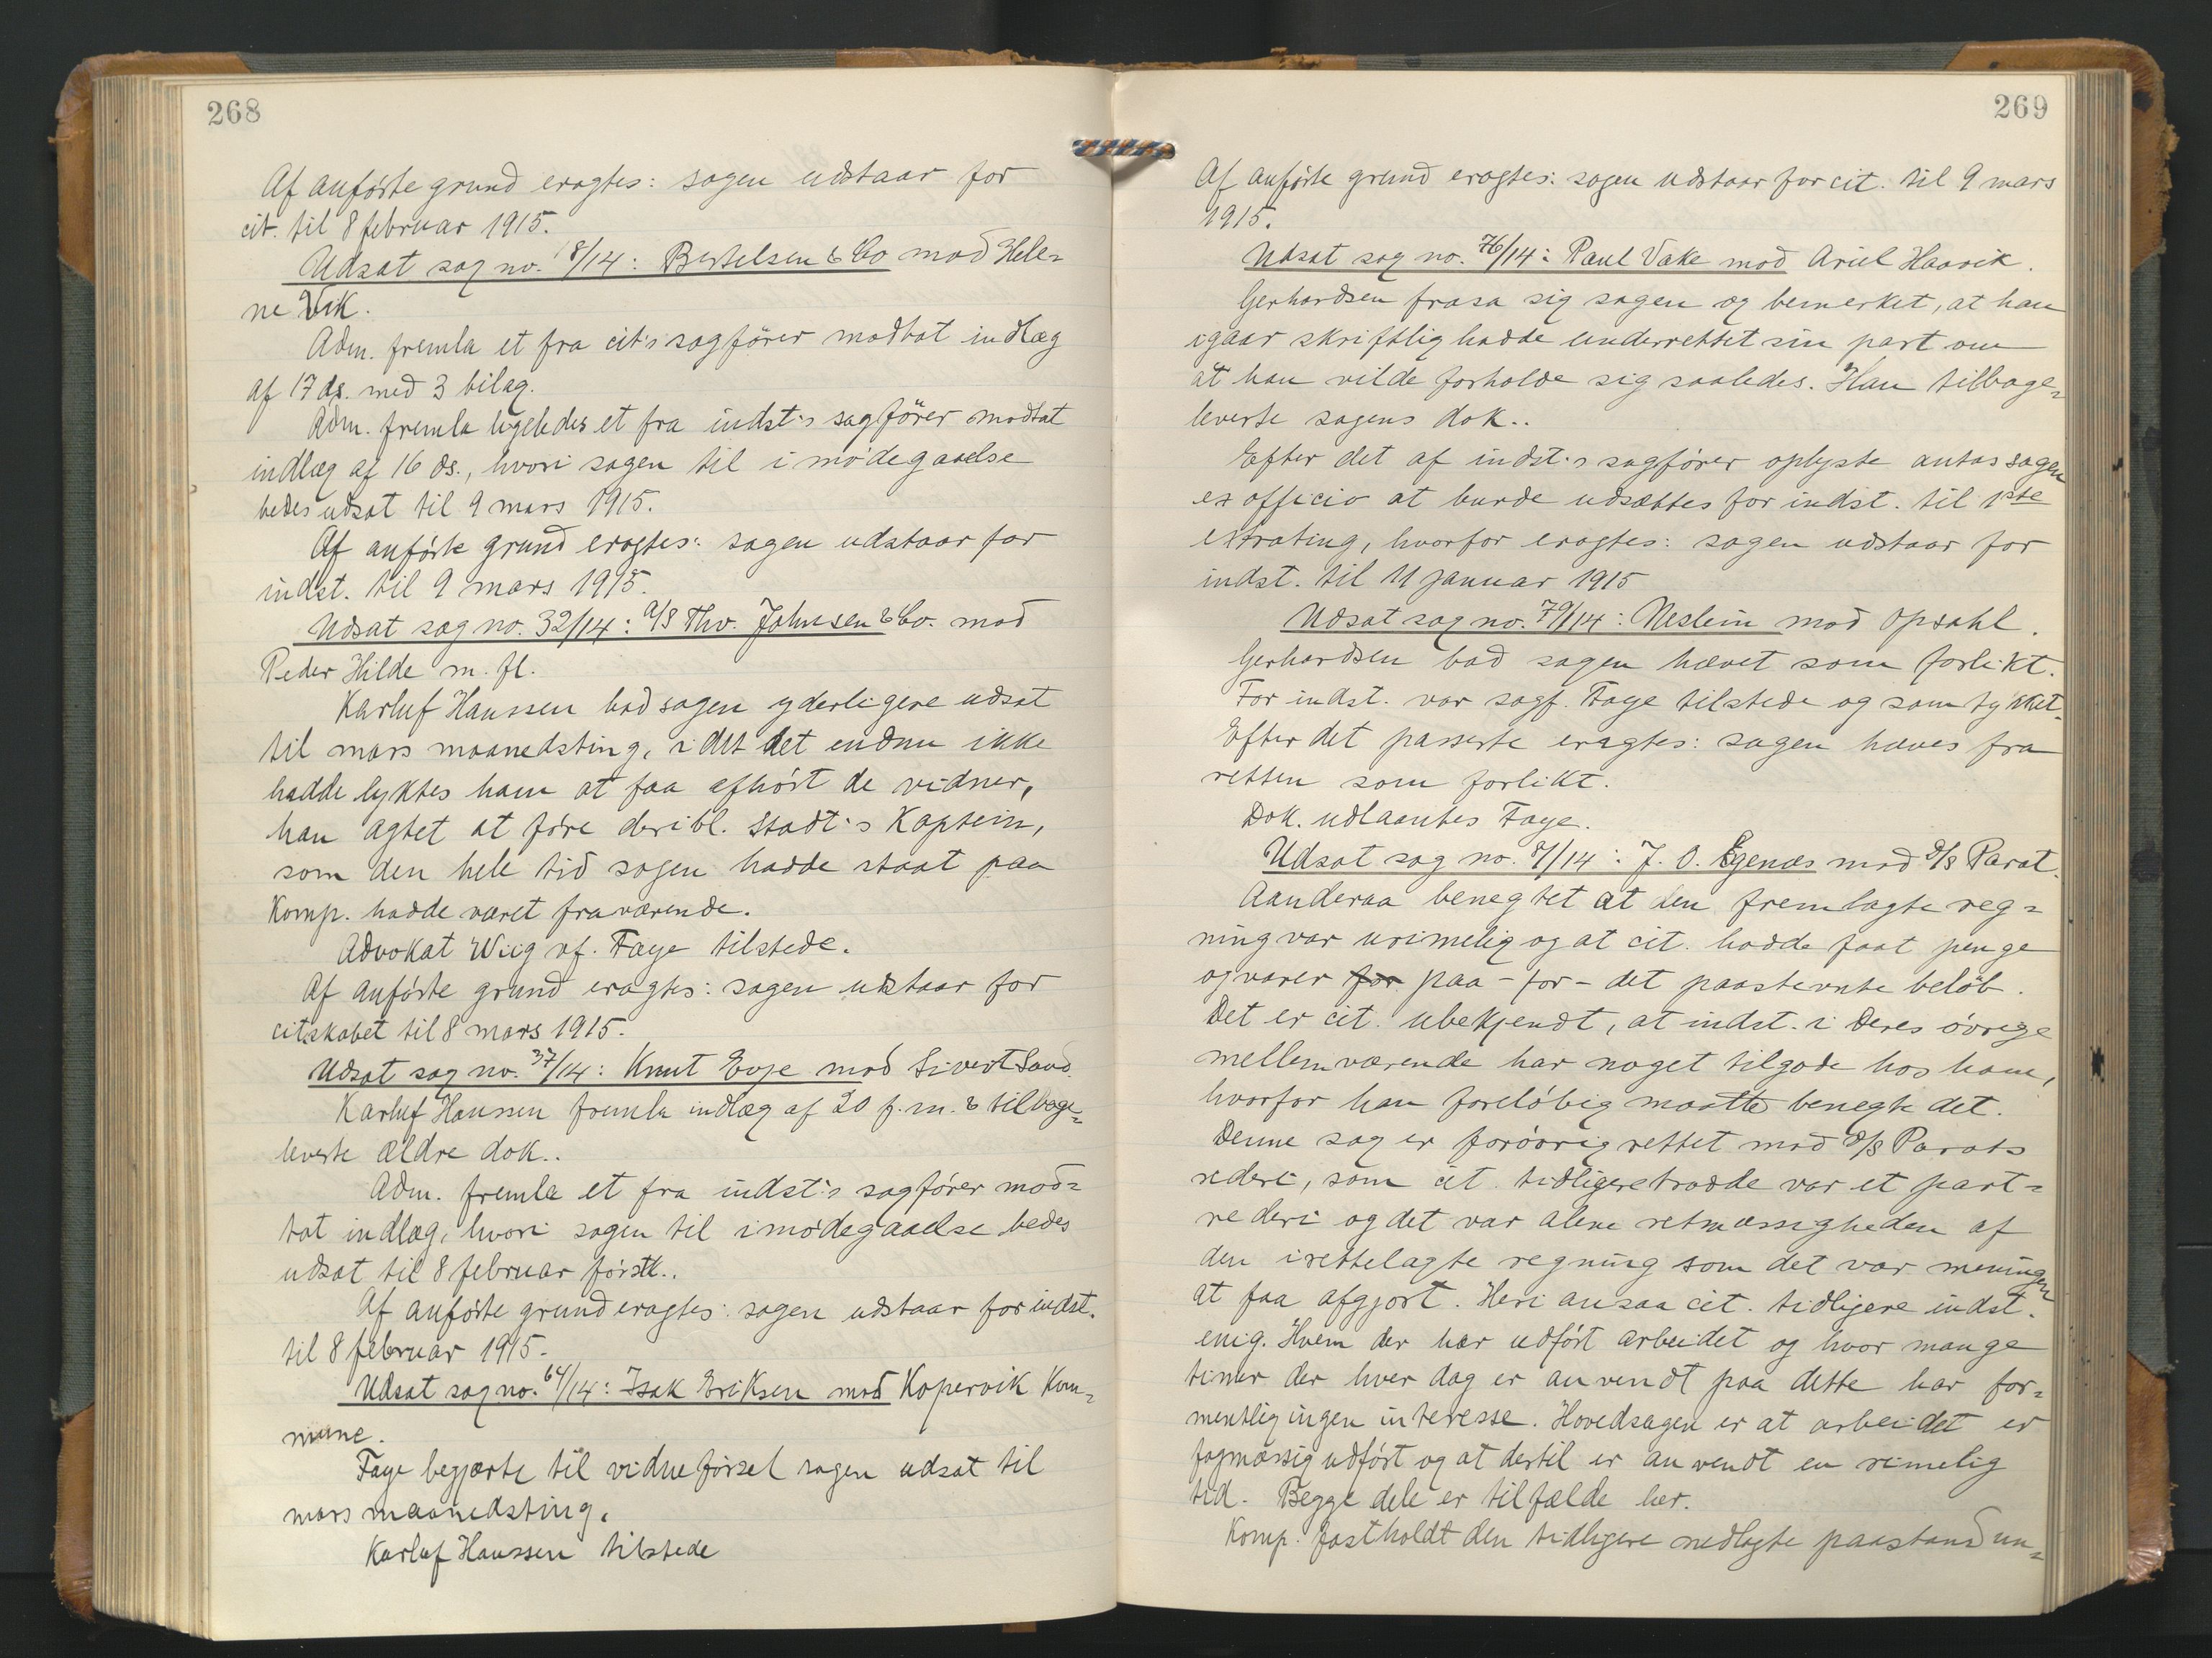 268
Af anførte grund eragtes: sagen udstaar for
cit. til 8 februar 1915.
Udsat sag no. 18/14: Bertelsen & Co mod Hele=
ne Vik.
Adm. fremla et fra cit's sagfører modtat indlæg
af 17 ds. med 3 bilag.
Adm. fremla ligeledes et fra indst:s sagfører modtat
indlæg af 16 ds., hvori sagen til imødegaaelse
bedes udsat til 9 mars 1915.
Af anførte grund eragtes: sagen udstaar for
indst. til 9 mars 1915.
Udsat sag no. 32/14: A/S Thv. Johnsen & Co. mod
Peder Hilde m. fl.
Karluf Hanssen bad sagen yderligere udsat
til mars maanedsting, idet det endnu ikke
hadde lyktes ham at faa afhørt de vidner,
han agtet at føre deribl. Stadt:s Kaptein,
som den hele tid sagen hadde staat paa
Komp. hadde været fraværende.
Advokat Wiig vf. Faye tilstede.
Af anførte grund eragtes: sagen udstaar for
citskabet til 8 mars 1915.
Udsat sag no. 37/14: Knut Evje mod Sivert Sand.
Karluf Hanssen fremla indlæg af 20 f.m. & tilbage=
leverte ældre dok..
Adm. fremla et fra indst:s sagfører mod=
tat indlæg, hvori sagen til imødegaaelse bedes
udsat til 8 februar førstk..
Af anførte grund eragtes: sagen udstaar for indst.
til 8 februar 1915.
Udsat sag no. 64/14: Isak Eriksen mod Kopervik Kom=
mune.
Faye begjærte til vidneførsel sagen udsat til
mars maanedsting.
Karluf Hanssen tilstede
269
Af anførte grund eragtes: sagen udstaar for cit. til 9 mars
1915.
Udsat sag no. 76/14: Paul Vake mod Ariel Haavik.
Gerhardsen frasa sig sagen og bemerket, at han
igaar skriftlig hadde underrettet sin part om
at han vilde forholde sig saaledes. Han tilbage=
leverte sagens dok..
Efter det af indst:s sagfører oplyste antas sagen
ex officio at burde udsættes for indst. til 1ste
extrating, hvorfor eragtes: sagen udstaar for
indst. til 11 januar 1915
Udsat sag no. 79/14: Neslein mod Opsahl.
Gerhardsen bad sagen hævet som forlikt.
For indst. var sagf. Faye tilstede og samtykket.
Efter det passerte eragtes: sagen hæves fra
retten som forlikt.
Dok. udlaantes Faye.
Udsat sag no. 9/14: J. O. Egenæs mod D/S Parat.
Aanderaa benegtet at den fremlagte reg=
ning var urimelig og at cit. hadde faat penge
og varer for paa - for - det paastevnte beløb.
Det er cit. ubekjendt, at indst. i deres øvrige
mellemværende har noget tilgode hos ham,
hvorfor han foreløbig maatte benegte det.
Denne sag er forøvrig rettet mod D/S Parats
rederi, som cit tidligere trodde var et part=
rederi og det var alene retmæssigheden af
den irettelagte regning som det var meningen
at faa afgjort. Heri ansaa cit. tidligere indst.
enig. Hvem der har udført arbeidet og hvor mange
timer der hver dag er anvendt paa dette har for=
mentlig ingen interesse. Hovedsagen er at arbeidet er
fagmæssig udført og at dertil er anvendt en rimelig
tid. Begge dele er tilfælde her.
Komp. fastholdt den tidligere nedlagte paastand un=